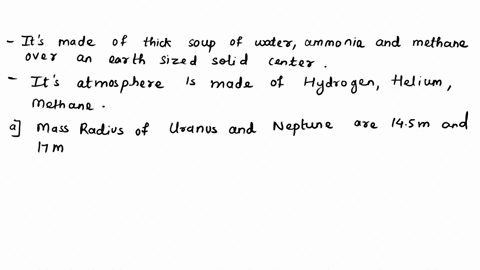 - It's made of thick soup of water, ammonia and methane
over an earth sized solid center.
- It's atmosphere is made of Hydrogen, Helium,
Methane.
a] Mass Radius of Uranus and Neptune are 14.5m and
17m